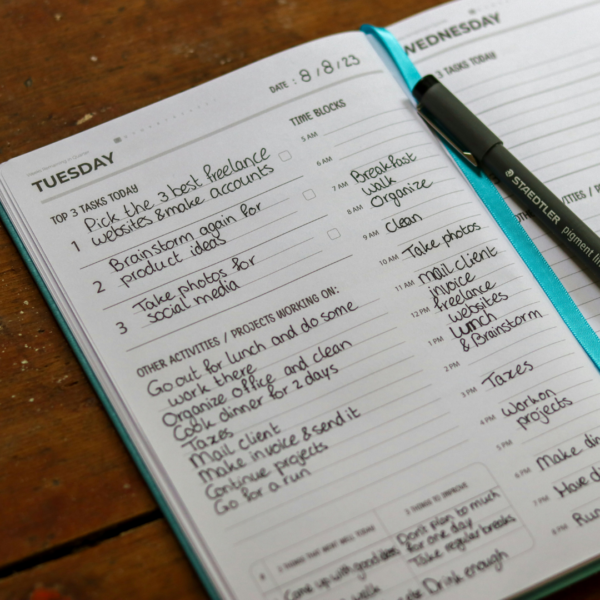 TUESDAY
DATE : 8/8/23
TOP 3 TASKS TODAY
1 Pick the 3 best freelance
websites & make accounts
2 Brainstorm again for
product ideas
3 Take photos for
social media
OTHER ACTIVITIES / PROJECTS WORKING ON:
Go out for lunch and do some
work there
Organize office and clean
Cook dinner for 2 days
Taxes
Mail client
Make invoice & send it
Continue projects
Go for a run
TIME BLOCKS
5 AM
6 AM
7 AM Breakfast
walk
8 AM Organize
9 AM clean
10 AM Take photos
11 AM mail client
invoice
12 PM freelance
websites
1 PM Lunch
& Brainstorm
2 PM
3 PM Taxes
4 PM work on
projects
5 PM
6 PM Make din
7 PM Have di
8 PM Run
3 THINGS THAT WENT WELL TODAY
Came up with good
walk
3 THINGS TO IMPROVE
Don't plan to much
for one day
Take regular breaks
Drink enough
WEDNESDAY
3 TASKS TODAY
STAEDTLER pigment lin